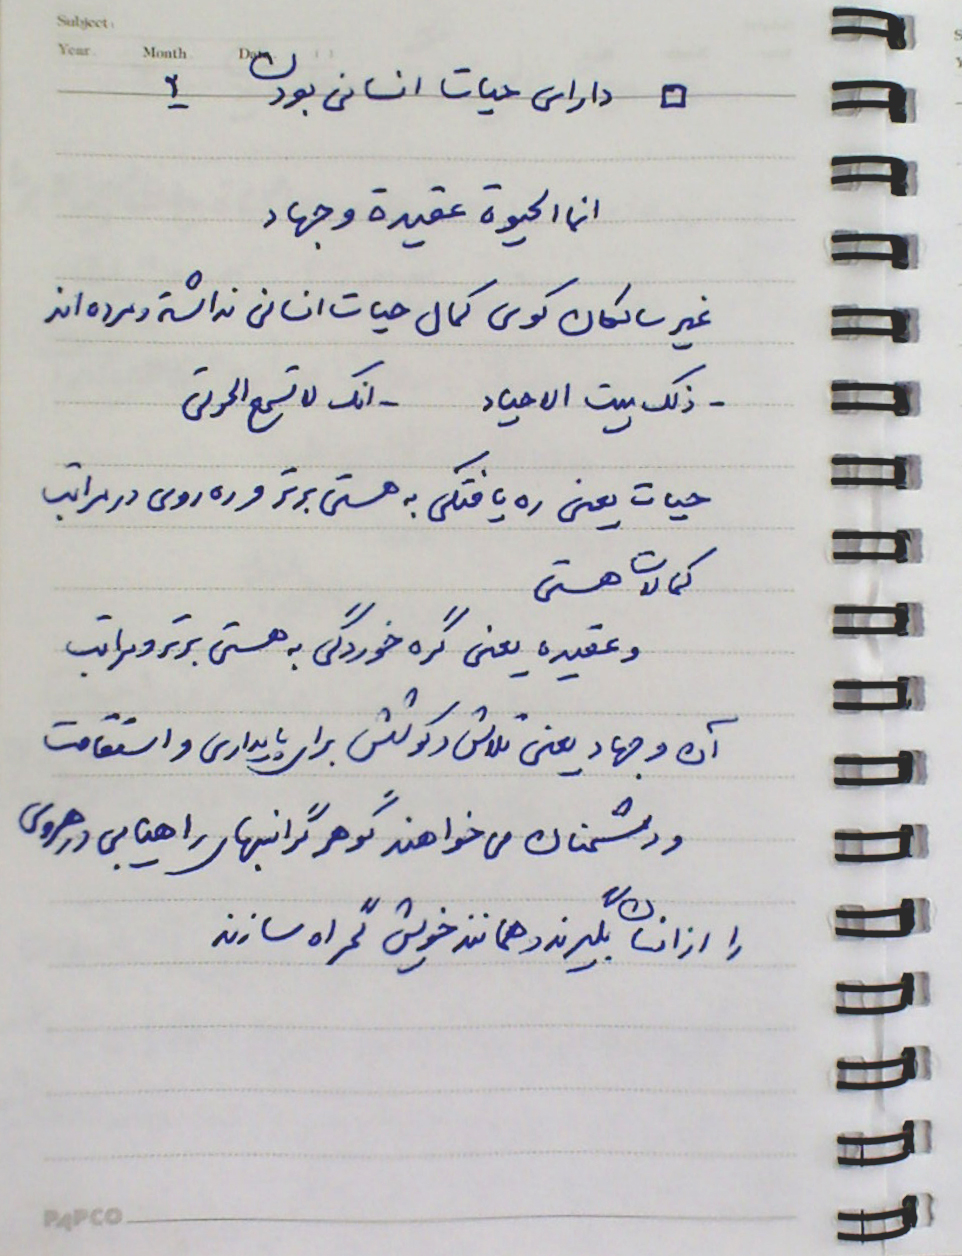 Subject:
Year Month Date ( )
□ دارای حیات انسانی بودن ۶
انما الحیوة عقیدة و جهاد
غیر سالکان کوی کمال حیات انسانی نداشته و مرده اند
- ذلک میت الاحیاء - انک لا تسمع الموتی
حیات یعنی ره یافتگی به هستی برتر و ره روی در مراتب
کمالات هستی
و عقیده یعنی گره خوردگی به هستی برتر و مراتب
آن و جهاد یعنی تلاش و کوشش برای پایداری و استقامت
و دشمنان می خواهند گوهر گرانبهای راهیابی و رهروی
را از انسان بگیرند و همانند خویش گمراه سازند
PAPCO